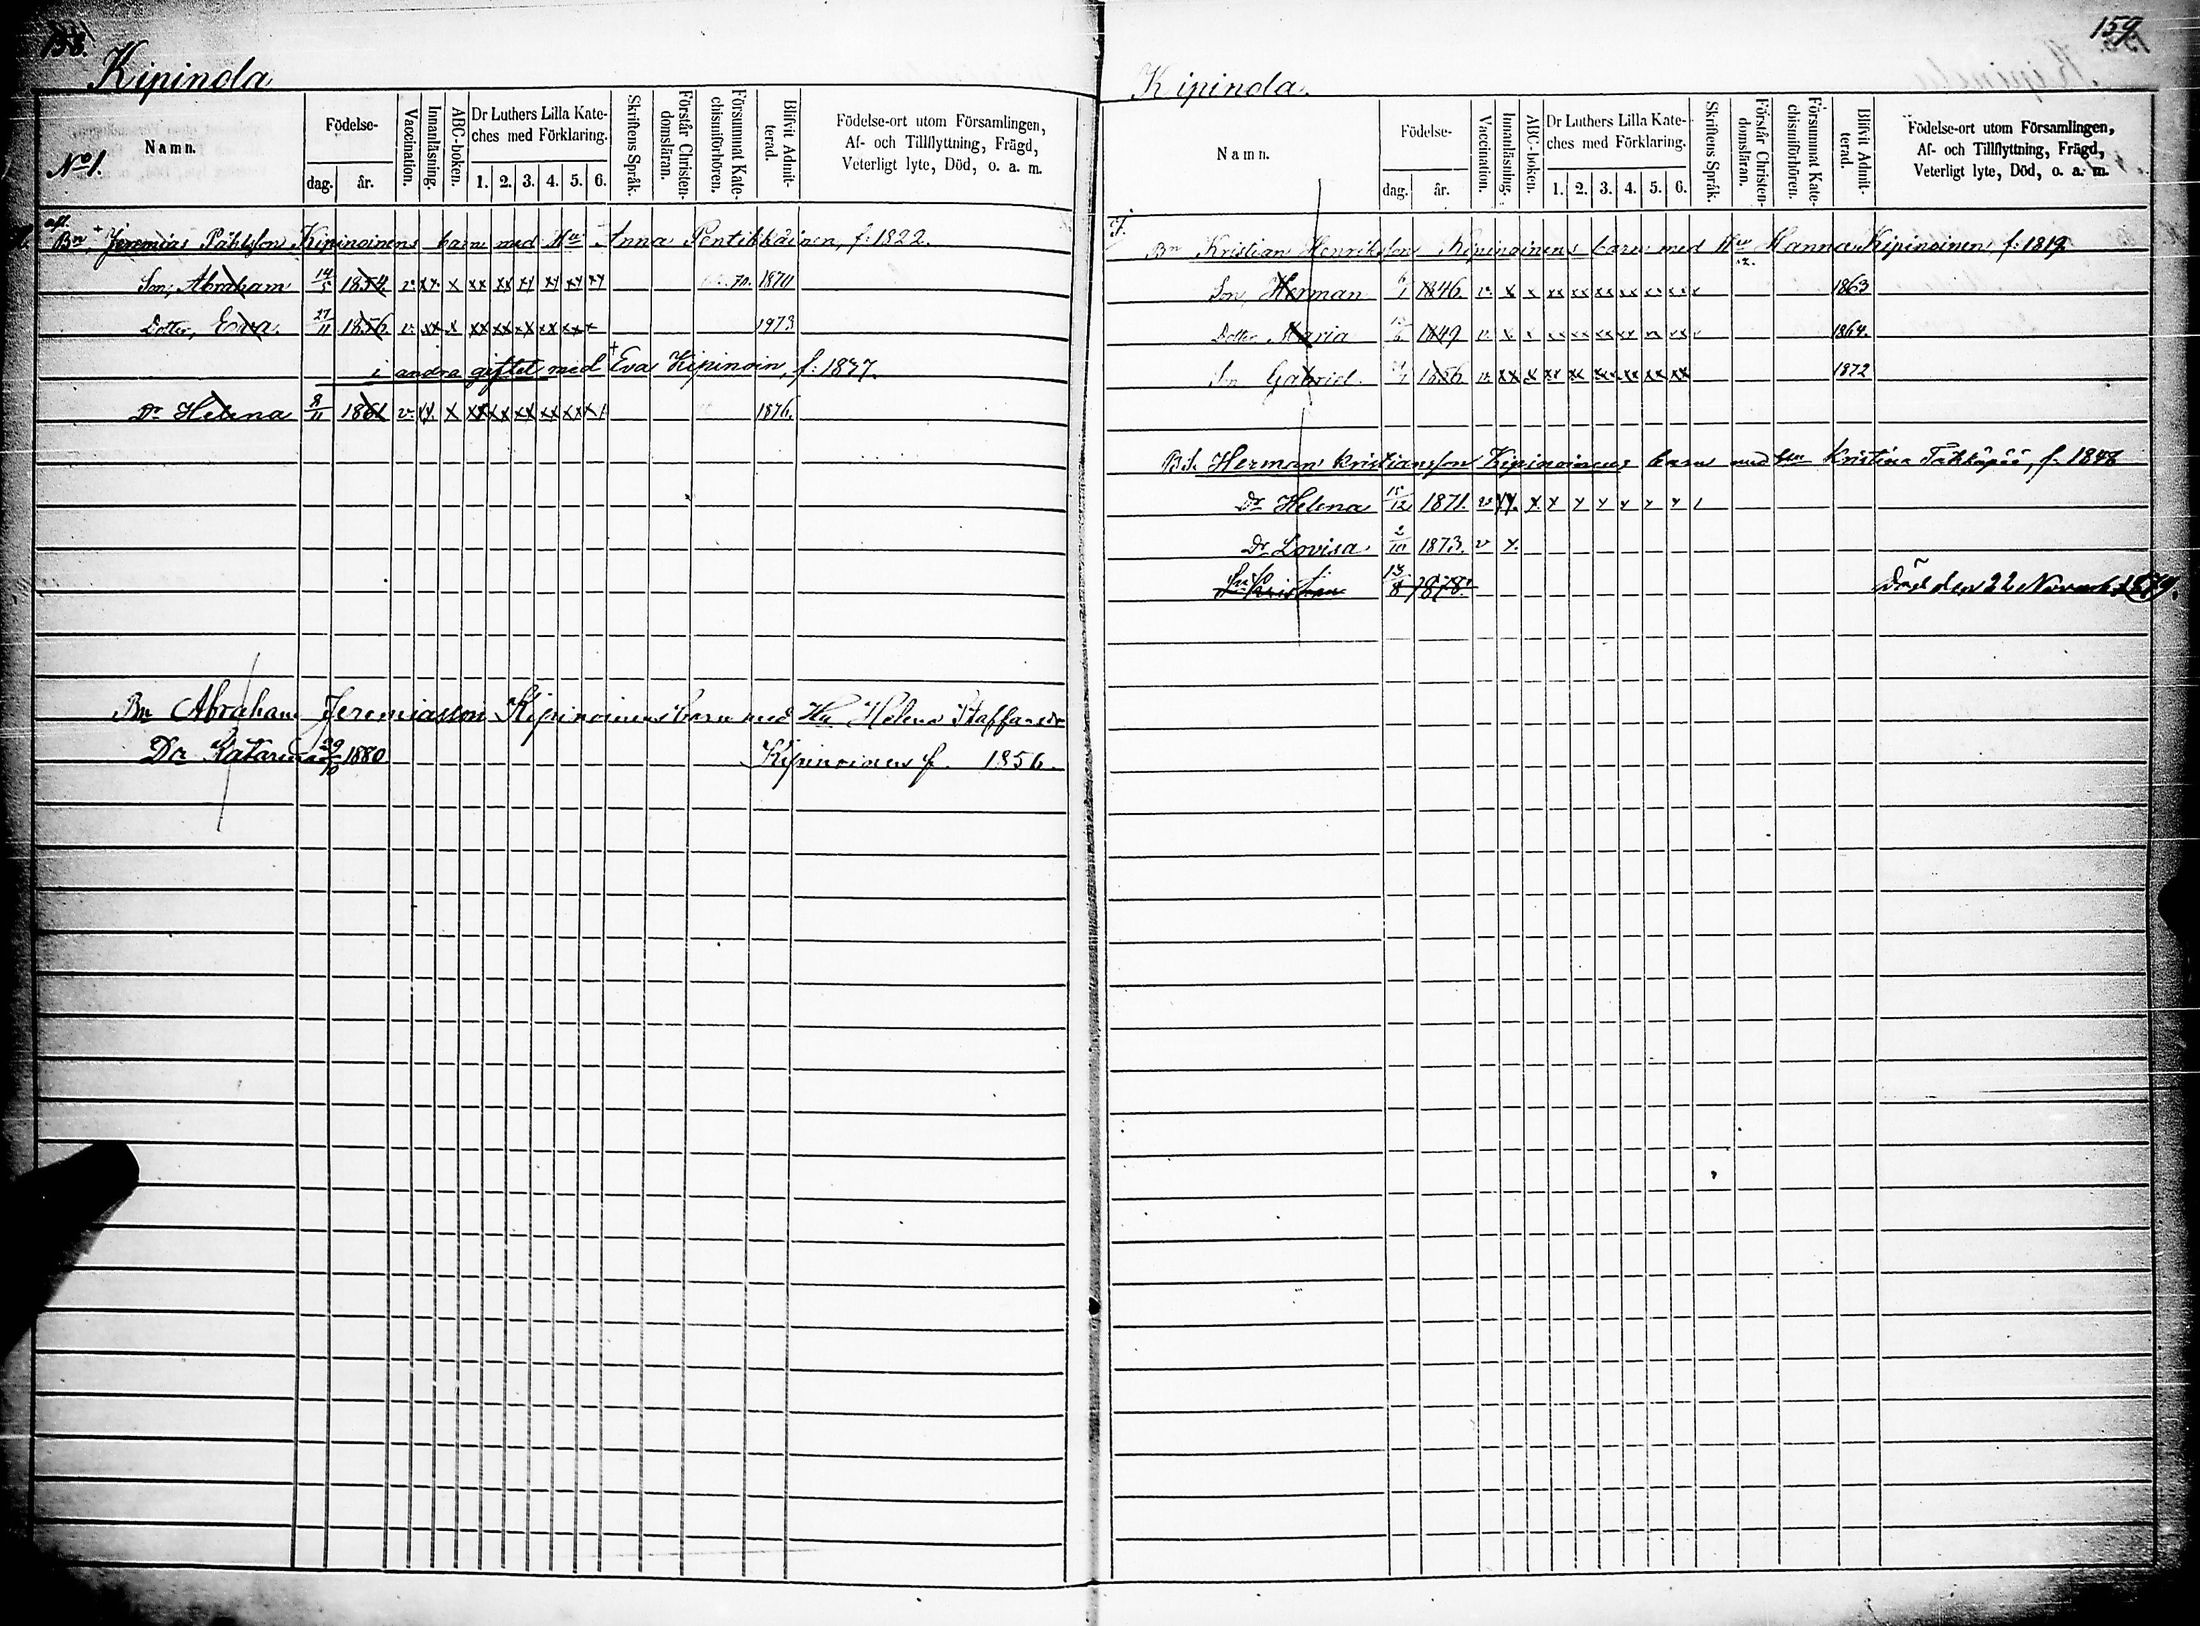 158.
Kipinola
No 1.
Namn.
Födelse-
dag. år.
Vaccination.
Innanläsning.
ABC-boken.
Dr Luthers Lilla Kate-
ches med Förklaring.
1. 2. 3. 4. 5. 6.
Skriftens Språk.
Förstår Christen-
domsläran.
Försummat Kate-
chismiförhören.
Blifvit Admit-
terad.
Födelse-ort utom Församlingen,
Af- och Tillflyttning, Frägd,
Veterligt lyte, Död, o. a. m.
Bn. Jeremias Påhlsson Kipinoinens barn med Hu Anna Pentikkäinen, f: 1822.
Son, Abraham 14/5 1854 v. xx x xx xx xx xx xx xx 70. 1870
Dotter, Eva. 27/11 1856 v. xx x xx xx xx xx xx x 1973
i andra giftet med + Eva Kipinoin, f: 1837.
Dr Helena 8/11 1861 v. xx x xx xx xx xx xx x 1876.
Bn Abraham Jeremiasson Kipinoinens barn med Hu Helena Staffansdr
Dr Katarina 29/10 1880 Kipinoinen f. 1856.
159.
Kipinola.
Namn.
Födelse-
dag. år.
Vaccination.
Innanläsning.
ABC-boken.
Dr Luthers Lilla Kate-
ches med Förklaring.
1. 2. 3. 4. 5. 6.
Skriftens Språk.
Förstår Christen-
domsläran.
Försummat Kate-
chismiförhören.
Blifvit Admit-
terad.
Födelse-ort utom Församlingen,
Af- och Tillflyttning, Frägd,
Veterligt lyte, Död, o. a. m.
Bn Kristian Henriksson Kipinoinens barn med Hu Hanna Kipinoinen f: 1812
Son, Herman 1846. v. x x xx xx xx xx xx xx 1863
Dotter Maria 1849 v. x x xx xx xx xx xx xx 1864.
Son Gabriel. 1856 v. xx x xx xx xx xx xx xx 1872
B.S. Herman Kristiansson Kipinoinens barn med Hu Kristina f. 1848
Dr Helena 15/12 1871. v xx. x x x x x x x
Dr Lovisa. 2/10 1873. v x.
Son Kristian 13/8 1878. Död den 22 Novemb. 1879.